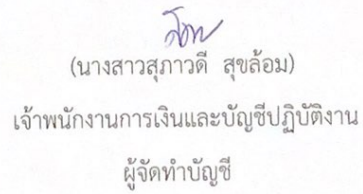 (นางสาวสุภาวดี สุขล้อม)
เจ้าพนักงานการเงินและบัญชีปฏิบัติงาน
ผู้จัดทำบัญชี